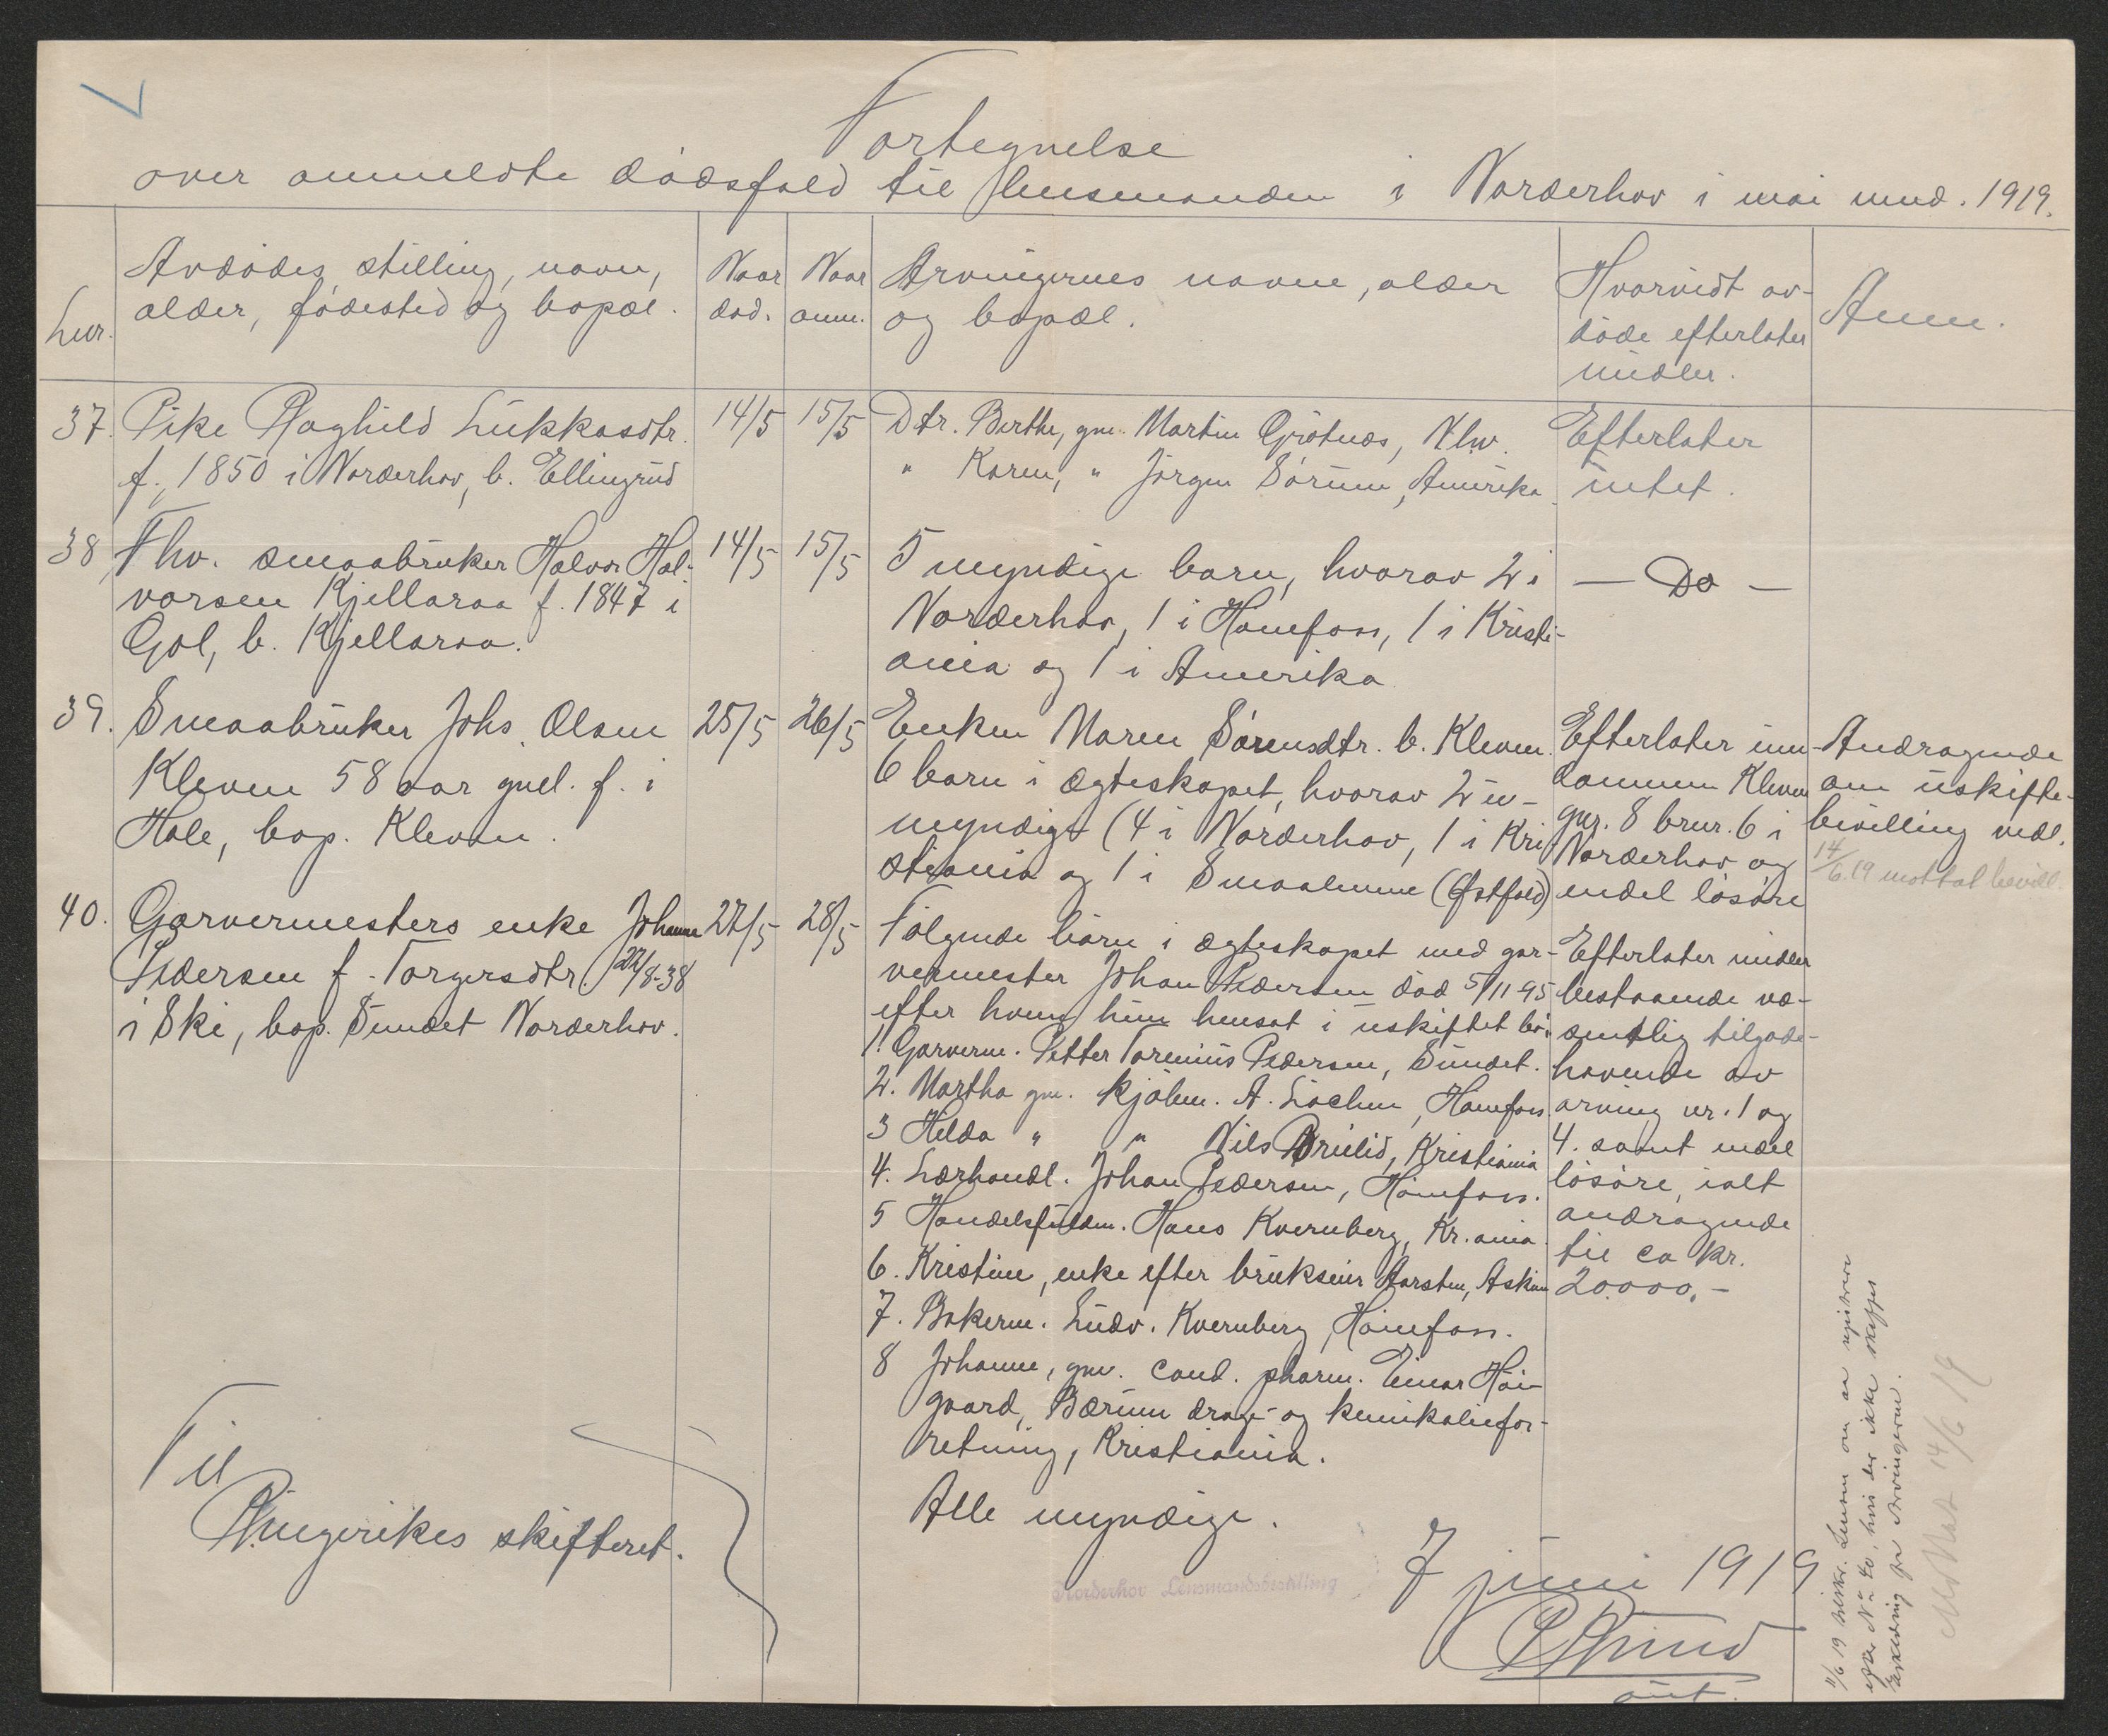 Fortegnelse
over anmeldte dødsfald til lensmanden i Norderhov i mai mnd. 1919.
Lnr.
Avdødes stilling, navn,
alder, fødested og bopæl.
Naar
død.
Naar
anm.
Arvingernes navne, alder
og bopæl.
Hvorvidt av-
døde efterlater
midler.
Anm.
37. Pike Raghild Lukkasdtr.
f. 1850 i Norderhov, b. Ellingrud
14/5
15/5
Dtr. Berthe, gm. Martin Gjøtnæs, Nhv.
" Karen, " Jørgen Sørum, Amerika
Efterlater
intet.
38 Fhv. smaabruker Halvor Hal-
vorsen Kjellaraa f. 1847 i
Gol, b. Kjellaraa.
14/5
15/5
5 myndige barn, hvorav 2 i
Norderhov, 1 i Hønefoss, 1 i Kristi-
ania og 1 i Amerika
— Do —
39. Smaabruker Johs. Olsen
Kleven 58 aar gml. f. i
Hole, bop. Kleven.
25/5
26/5
Enken Maren Sørensdtr. b. Kleven.
6 barn i ægteskapet, hvorav 2 u-
myndige (4 i Norderhov, 1 i Kri
stiania og 1 i Smaalenene (Østfold)
Efterlater eien-
dommen Kleven
gnr. 8 brnr. 6 i
Norderhov og
endel løsøre
Andragende
om uskifte-
bevilling vedl.
14/6.19 mottat bevill.
40. Garvermesters enke Johanne
Pedersen f. Torgersdtr. 22/8-38
i Ski, bop. Sundet Norderhov.
27/5
28/5
Følgende børn i ægteskapet med gar-
vermester Johan Pedersen død 5/11 95
efter hvem hun hensat i uskiftet bo:
1. Garverm. Petter Torenius Pedersen, Sundet.
2. Martha gm. kjøbm. A. Løchen, Hønefoss.
3 Helda " " Nils Brulid, Kristiania
4. Lærhandl. Johan Pedersen, Hønefoss.
5 Handelsfuldm. Hans Kvernberg, Kr.ania.
6. Kristine, enke efter brukseier Aarsten, Askim
7. Bakerm. Ludv. Kvernberg, Hønefoss.
8 Johanne, gm. cand. pharm. Einar Høi-
gaard, Bærum droge- og kemikaliefor-
retning, Kristiania.
Alle myndige.
Efterlater midler
bestaaende væ-
sentlig tilgode-
havende av
arving nr. 1 og
4. samt endel
løsøre, ialt
andragende
til ca kr.
20.000,-
Til
Ringerikes skifteret.
Norderhov Lensmandsbestilling
7 juni 1919
11/6 19 tilskr. Lensm om at registrere
efter No 40, hvis der ikke skaffes
Erklæring fra Arvingerne.
Mottat 14/6 19